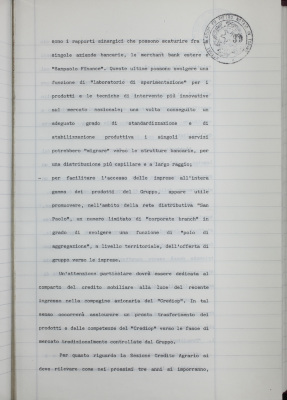 sono i rapporti sinergici che possono maturare fra
singole aziende bancarie, le merchant bank estere e
"Sanpaolo Finance". Queste ultime possono svolgere una
funzione di "laboratorio di sperimentazione" per i
prodotti e le tecniche di intervento più innovative
sul mercato nazionale; una volta conseguito un
adeguato grado di standardizzazione e di
stabilizzazione produttiva i singoli servizi
potrebbero "migrare" verso le strutture bancarie, per
una distribuzione più capillare e a largo raggio;
per facilitare l'accesso delle imprese all'intera
gamma dei prodotti del Gruppo, appare utile
promuovere, nell'ambito della rete distributiva "San
Paolo", un numero limitato di "corporate branch" in
grado di svolgere una funzione di "polo di
aggregazione", a livello territoriale, dell'offerta di
gruppo verso le imprese.
Un'attenzione particolare dovrà essere dedicata al
comparto del credito mobiliare alla luce del recente
ingresso nella compagine azionaria del "Crediop". In tal
senso occorrerà assicurare un pronto trasferimento dei
prodotti e delle competenze del "Crediop" verso le fasce di
mercato tradizionalmente controllate dal Gruppo.
Per quanto riguarda la Sezione Credito Agrario si
deve rilevare come nei prossimi tre anni si imporranno,